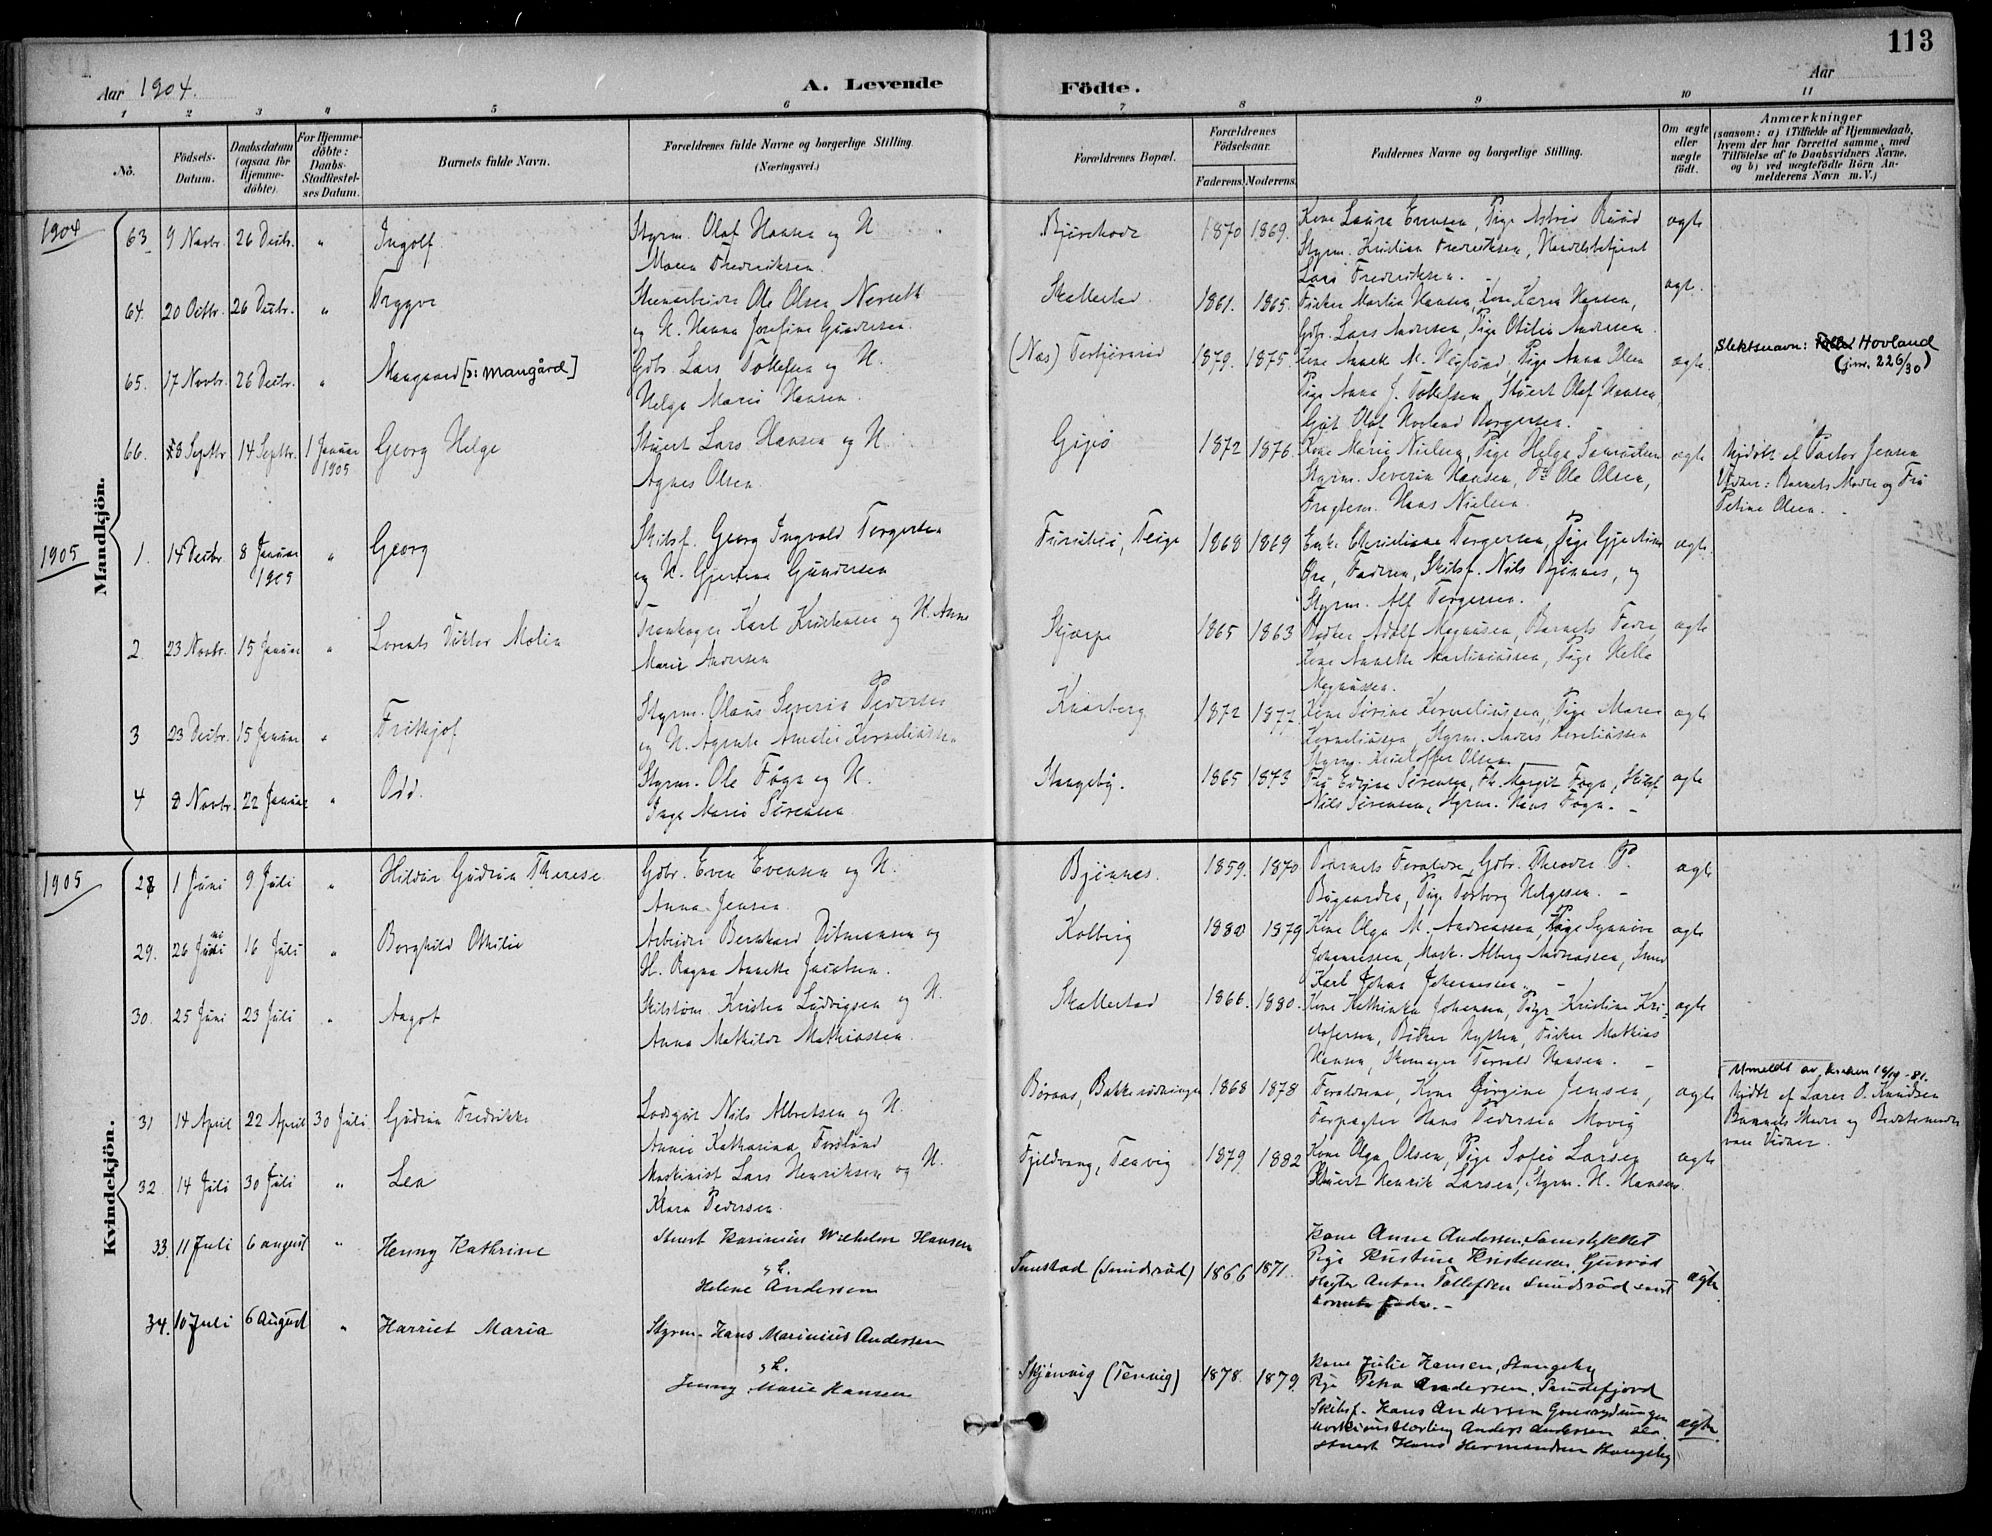 113
Aar 1904.
A. Levende Födte.
Aar
1 2 3 4 5 6 7 8 9 10 11
Nô.
Födsels-Datum.
Daabsdatum (ogsaa for Hjemme-döbte).
For Hjemme-döbte: Daabs-Stadfæstel-ses Datum.
Barnets fulde Navn.
Forældrenes fulde Navne og borgerlige Stilling. (Næringsvei.)
Forældrenes Bopæl.
Forældrenes Födselsaar.
Faderens. Moderens.
Faddernes Navne og borgerlige Stilling.
Om ægte eller uægte födt.
Anmærkninger
(saasom: a) i Tilfælde af Hjemmedaab, hvem der har forrettet samme, med Tilföielse af to Daabsvidners Navne, og b) ved uægtefödte Börn An-melderens Navn m. V.)
Mandkjön.
1904
63 9 Novbr. 26 Decbr. " Ingolf
Styrm. Olaf Hansen og H.
Maren Fredriksen
1870 1869.
Kone Laura Evensen, Pige Astrid Ruud
Styrm. Kristian Fredriksen, Handelsbetjent
Lars Fredriksen. -
ægte
64. 20 Octbr. 26 Decbr. " Tryggve
Stenarbeider Ole Olsen
og H. Hanna Josefine Gundersen.
Skallestad
1861. 1865.
Fisker Martin Hansen, Kone Karen Hansen,
Gdbr. Lars Andersen, Pige Otilie Andersen
ægte.
65. 17 Novbr. 26 Decbr. " Mangaard [ɔ: Mangård]
Gdbr. Lars Tollefsen og H.
Helga Marie Hansen.
(Næs)
1879. 1875.
Pige Anna Olsen
Pige Anna J. Tollefsen, Stuert Olaf Hansen,
Olaf Hovland
ægte.
Slektsnavn: Hovland
(jrnr. 226/30)
66. 8 Septbr 14 Septbr. 1 Januar 1905 Georg Helge
Stuert Lars Hansen og H.
Agnes Olsen.
Gipø
1872 1876
Kone Marie Nielsen, Pige Helga Samuelsen
Styrm. Severin Hansen, Do Ole Olsen,
Hans Nielsen
ægte
Hjdøbt af Pastor Jensen
Vidner: Barnets Moder og Fru
Petine Olsen.
1905
1. 14 Decbr. 8 Januar 1905 " Georg
Skibsf. Georg Ingvald Torgersen
og H. Gjertine Gundersen
Teige
1868 1869
Enke Christiane Torgersen, Pige Gjertine
Øre, Faderen, Skibsf. Nils Bjønnes, og
Styrm. Alf Torgersen.
ægte.
2. 23 Novbr. 15 Januar " Lorents Viktor Malin
Trankoger Karl Kristensen og H. Anne
Marie Andersen
Skjærpe
1865 1863
Adolf Magnussen, Barnets Fader,
Kone Annette Martiniussen, Pige Hella
Magnussen.
ægte
3 23 Decbr. 15 Januar " Fritkjof
Styrm. Olaus Severin Pedersen
og H. Agente Amalie Korneliussen
Knarberg
1872 1877.
Kone Sørine Korneliussen, Pige Maren
Korneliussen, Styrm. Anders Korneliussen
Styrm. Kristoffer Olsen
ægte
4 8 Novbr. 22 Januar " Odd.
Styrm. Ole Føyn og H.
Inga Marie Sørensen
Stangeby.
1865 1873
Fru Edvine Sørensen, Frk. Margit Føyn, Skibsf.
Nils Sørensen, Styrm. Hans Føyn. -
ægte
Kvindekjön.
1905
28 1 Juni 9 Juli " Hildur Gudrun Therese
Gdbr. Even Evensen og H.
Anna Jensen
Bjønnes.
1859. 1870
Barnets Forældre, Gdbr. Theodor P.
Bugaarden, Pige Torborg Helgesen. -
ægte
29. 26 Juni 16 Juli " Borghild Othilie
Arbeider Bernhard Ditmansen og
H. Ragna Annette Jacobsen.
Kolberg
1880 1879
Kone Olga M. Andreassen, Pige Synnøve
Johannessen, Mask. Alberg Andreassen, Smed
Karl Johan Johannesen. -
ægte
30. 25 Juni 23 Juli " Aagot
Skibstøm. Kristen Ludvigsen og H.
Anna Mathilde Mathiassen.
Skallestad
1866. 1880.
Kone Kathinka Johansen, Pige Kristine Kri-
stofersen, Bødker Fisker Mathias
Hansen, Skomager Torvald Hansen. -
ægte
31 14 April 22 April 30 Juli Gudrun Fredrikke
Lodsgut Nils Albretsen og H.
Annie Katharina Forslund
Børaas,
1868 1878
Forældrene, Kone Jørgine Jensen,
Forpagter Hans Pedersen Movig
ægte
Utmeldt av kirken 18/19-81.
Hjdbt af Lærer O. Knudsen
Barnets Moder og Bedstemoder
vare Vidner.
32. 14 Juli 30 Juli " Lea
Maskinist Lars Henriksen og H.
Klara Pedersen.
Fjeldvang, Tenvig
1879. 1882
Kone Olga Olsen, Pige Sofie Larsen
Stuert Henrik Larsen, Styrm. H. Hansen.
ægte
33. 11 Juli 6 august " Henny Kathrine
Stuert Karinius Wilhelm Hansen
o. h.
Helene Andersen
(Smidsrød)
1866 1871.
Kone Anne Andersen, Sæmstykket
Pige Kristine Kristensen, Gunrød
Anton Tollefsen Smidsrød samt
barnets fader. -
ægte.
34. 10 Juli 6 August " Harriet Maria
Styrm. Hans Marinius Andersen
o. h.
Jenny Marie Hansen
Skjærvig (Tenvig)
1878. 1879.
Kone Julie Hansen, Stangeby
Pige Petra Andersen, Sandefjord
Skibsf. Hans Andersen
Anders Andersen
Stuert Hans Hermandsen Stangeby
ægte.